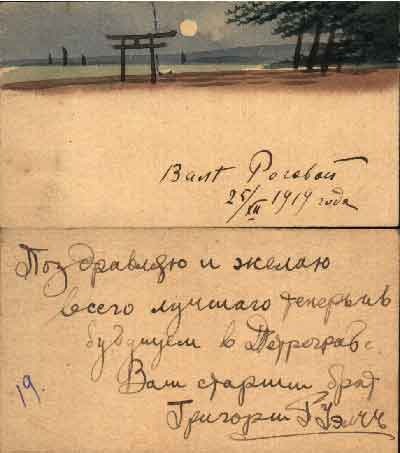 Валѣ Роговой
25/XII 1919 года
Поздравляю и желаю
всего лучшаго теперь и в
будущем в Петрограде
Ваш старший брат
Григорий
19.